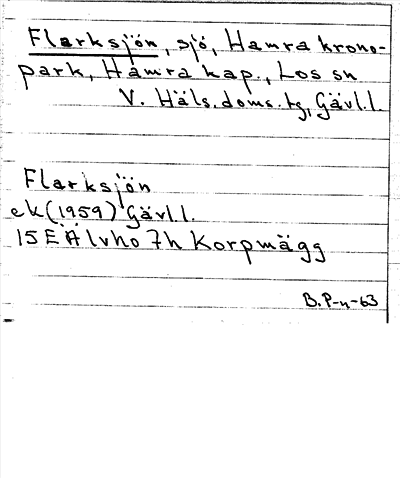 Flarksjön, sjö, Hamra krono-
park, Hamra kap., Los sn
V. Häls. doms. tg, Gävl.l.
Flarksjön
ek (1959) Gävl.l.
15 E Älvho 7h Korpmägg
B.P-n-63